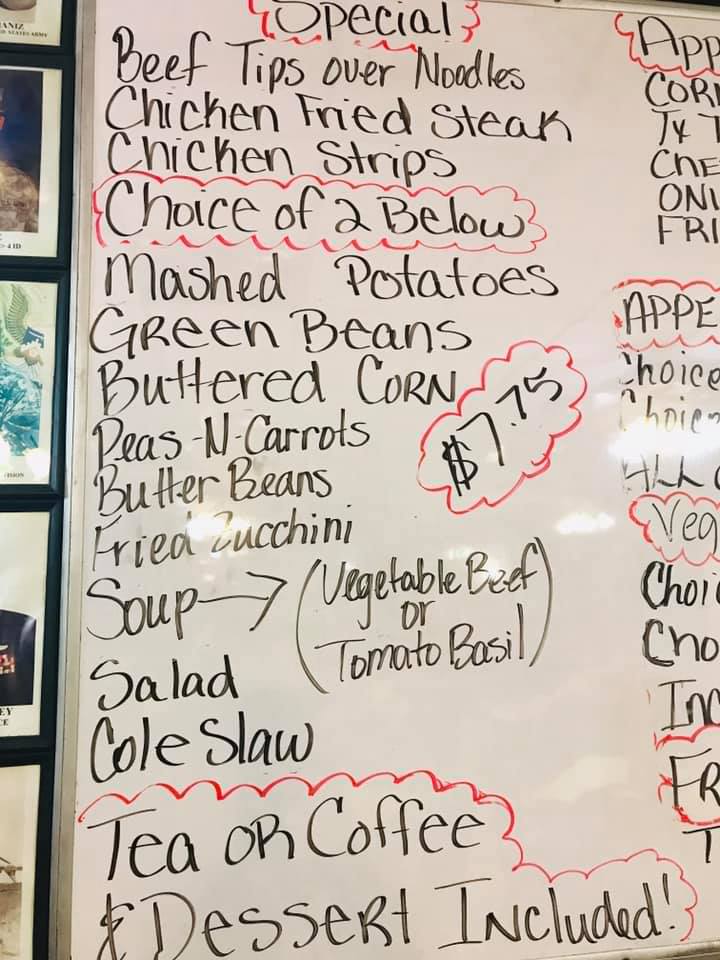 Special
Beef Tips over Noodles
Chicken Fried Steak
Chicken Strips
Choice of 2 Below
Mashed Potatoes
Green Beans
Buttered Corn
$7.75
Peas-N-Carrots
Butter Beans
Fried Zucchini
Soup → (Vegetable Beef
or
Tomato Basil)
Salad
Cole Slaw
Tea or Coffee
& Dessert Included!
APP
CORN
TX T
CHE
ONI
FRI
APPE
Choice
Choice
ALL
Veg
Choi
Cho
Inc
FR
T